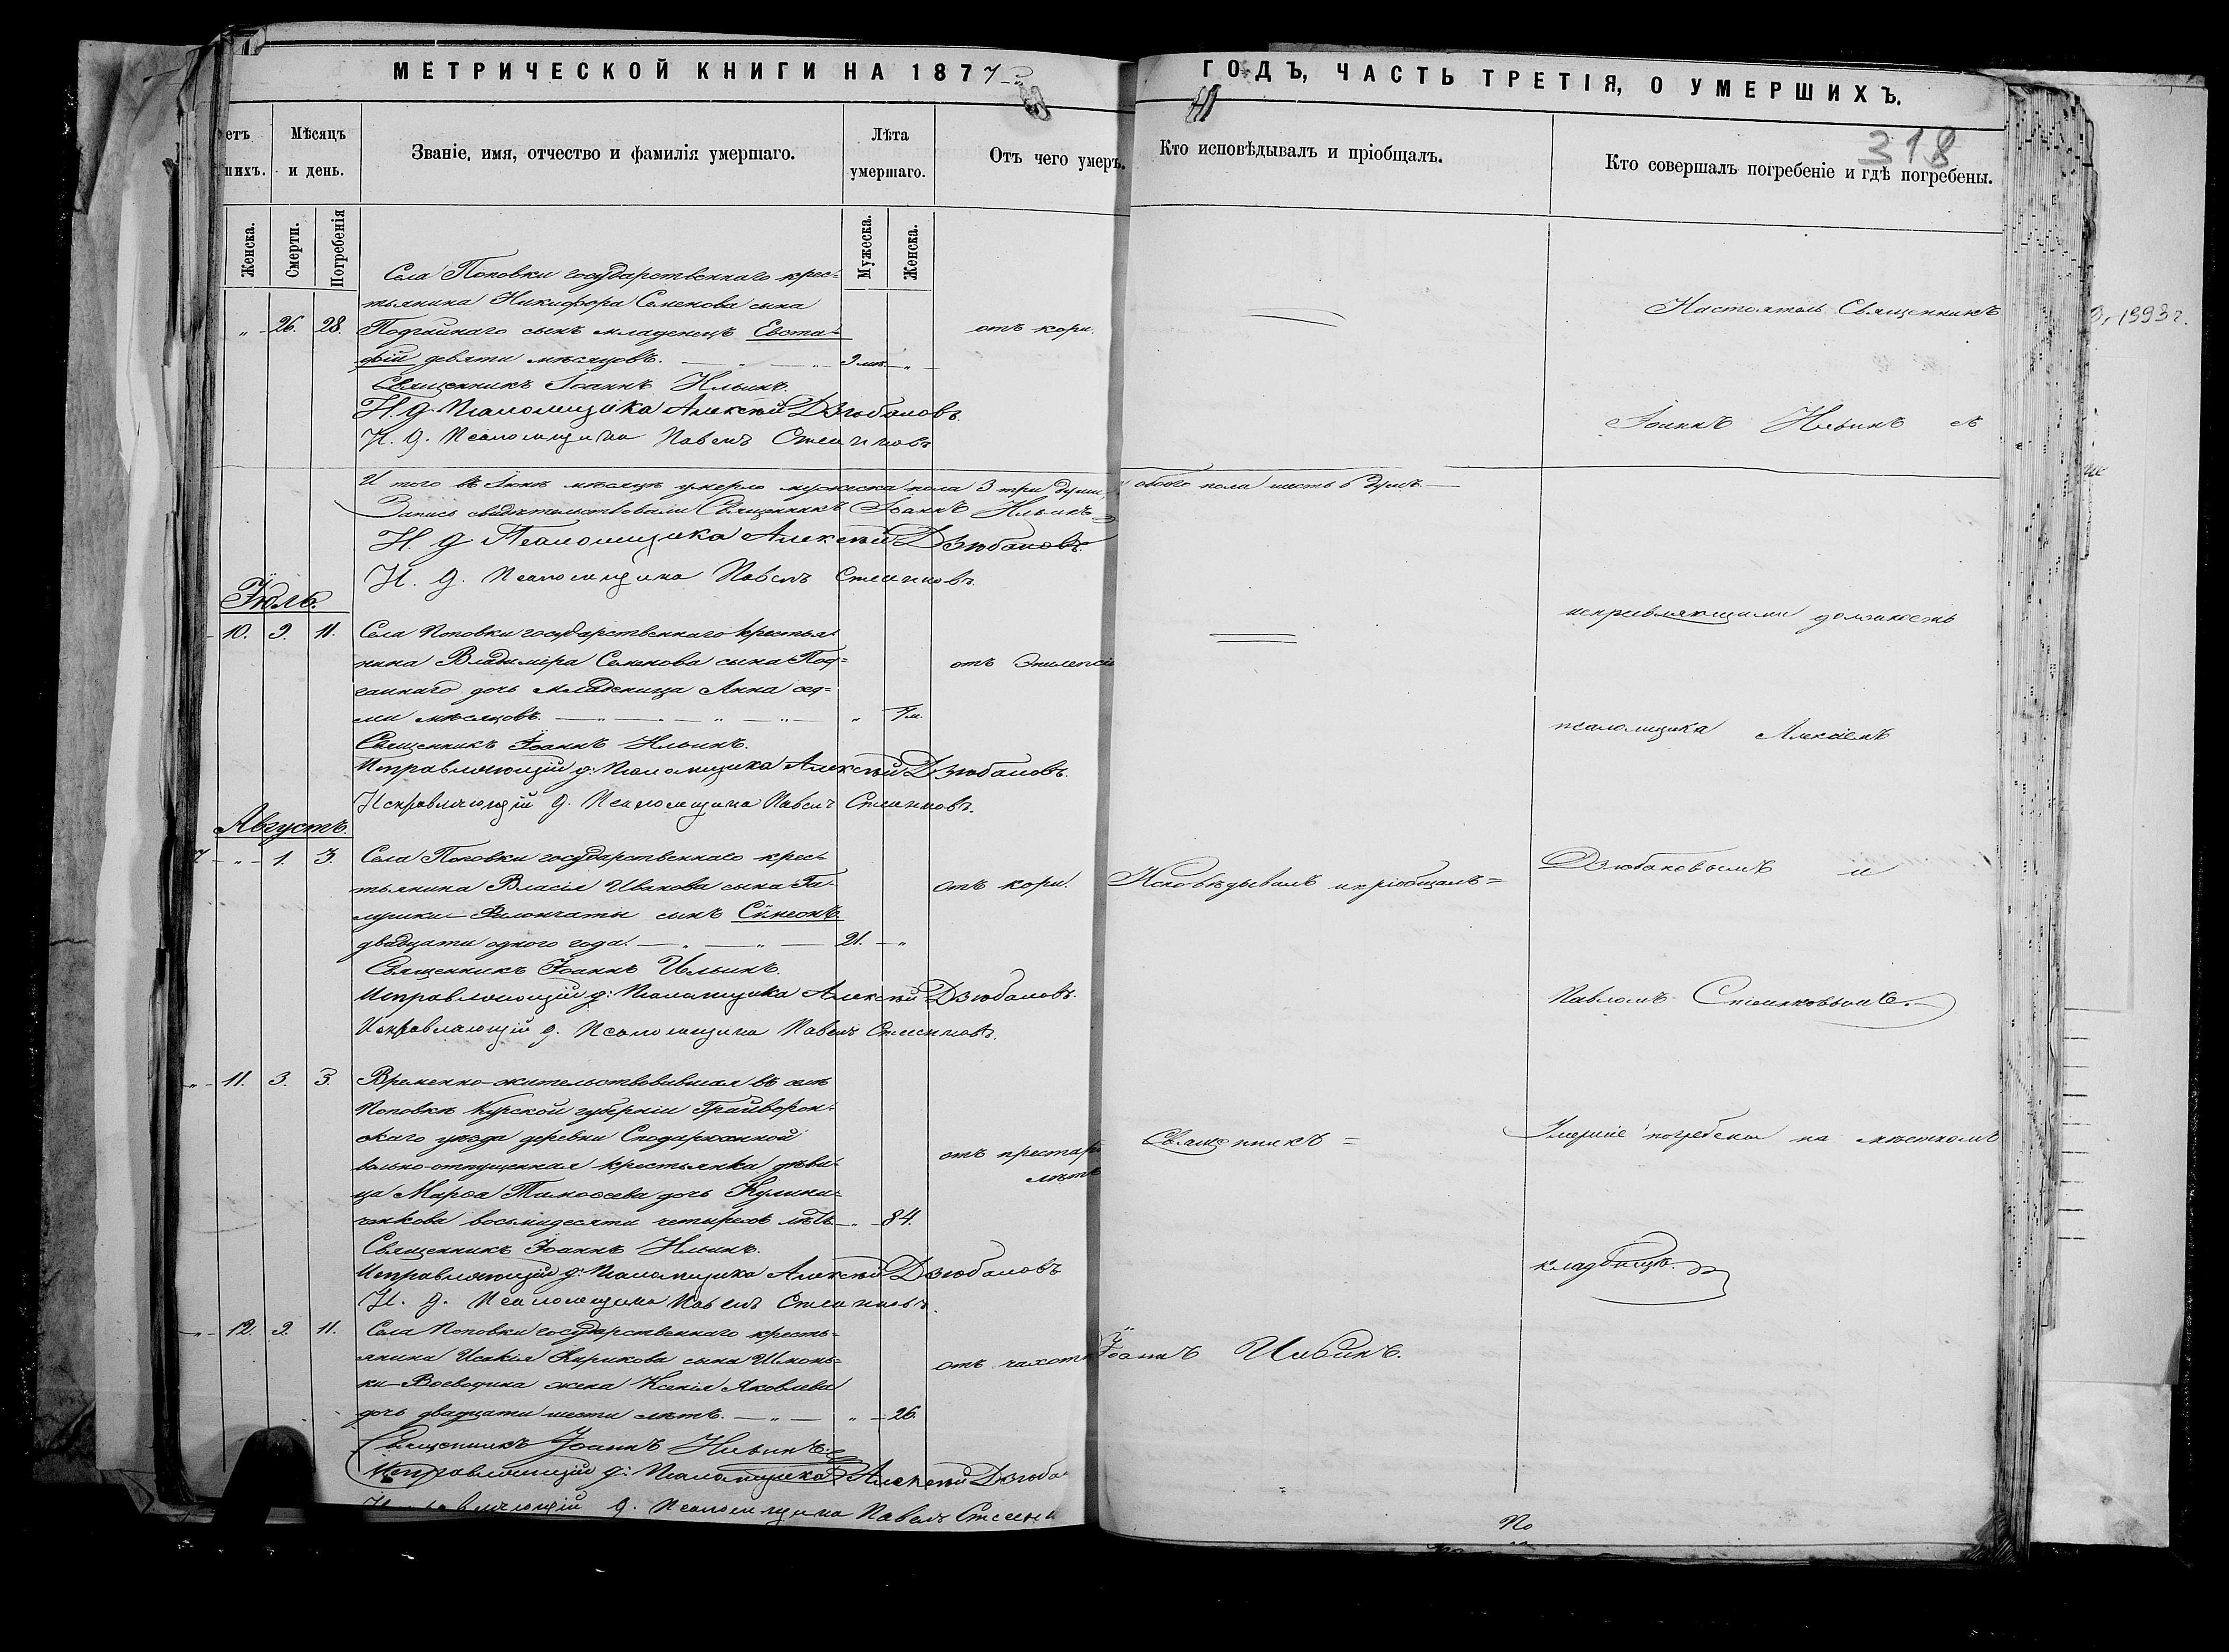 МЕТРИЧЕСКОЙ КНИГИ НА 1877
ГОДЪ, ЧАСТЬ ТРЕТІЯ, О УМЕРШИХЪ.
318
етъ
нихъ.
Мѣсяцъ
и день.
Званіе, имя, отчество и фамилія умершаго.
Лѣта
умершаго.
Отъ чего умеръ.
Кто исповѣдывалъ и пріобщалъ.
Кто совершалъ погребеніе и гдѣ погребены.
Женска.
Смерти.
Погребенія
Мужеска.
Женска.
Села Поповки государственнаго крес-
тьянина Никифора Семенова сына
„ 26. 28. Подгайнаго сынъ младенецъ Евста- отъ кори.
фій девяти мѣсяцовъ. 9 мѣ. „
Священникъ Іоаннъ Ильинъ.
И. д. Псаломщика Алексѣй Дзюбановъ.
И. д. Псаломщика Павелъ
Итого въ Іюнѣ мѣсяцѣ умерло мужеска пола 3 три души, обоего пола шесть 6 душъ.
Запись свидѣтельствовали Священникъ Іоаннъ Ильинъ
И. д. Псаломщика Алексѣй Дзюбановъ.
И. д. Псаломщика Павелъ
Іюль.
10. 9. 11. Села Поповки государственнаго крестья-
нина Владиміра Семенова сына Под- отъ Эпилепсіи
гаинаго дочь младеница Анна сед-
ми мѣсяцовъ. „ 7 м.
Священникъ Іоаннъ Ильинъ.
Исправляющій д: Псаломщика Алексѣй Дзюбановъ.
Исправляющій д. Псаломщика Павелъ
Августъ.
7 „ 1. 3. Села Поповки государственнаго крес-
тьянина Власія Иванова сына Га- отъ кори.
сынъ Сѵмеонъ
двадцати одного года. 21. „
Священникъ Іоаннъ Ильинъ.
Исправляющій д: Псаломщика Алексѣй Дзюбановъ.
Исправляющій д. Псаломщика Павелъ
„ 11. 3. 3. Временно-жительствовавшая въ селѣ
Поповкѣ Курской губерніи Грайворон-
скаго уѣзда деревни
вольно-отпущенная крестьянка дѣви- отъ престар
ца Марѳа Тимоѳеева дочь Кулини- лѣтъ
ченкова восьмидесяти четырехъ лѣтъ „ 84.
Священникъ Іоаннъ Ильинъ.
Исправляющій д: Псаломщика Алексѣй Дзюбановъ
И. д. Псаломщика Павелъ
„ 12. 9. 11. Села Поповки государственнаго кресть-
янина Исакія Кирикова сына отъ чахотки
Воеводина жена Ксенія Яковлева
дочь двадцати шести лѣтъ. „ „ 26.
Священникъ Іоаннъ Ильинъ.
Исправляющій д: Псаломщика Алексѣй Дзюба
д. Псаломщика Павелъ
Исповѣдывалъ и пріобщалъ =
Священникъ =
Іоаннъ Ильинъ.
Настоятель Священникъ
Іоаннъ Ильинъ съ
исправляющими должность
псаломщика Алексѣемъ
Дзюбановымъ и
Павломъ
Умершіе погребены на мѣстномъ
кладбищѣ.
По
1993 г.